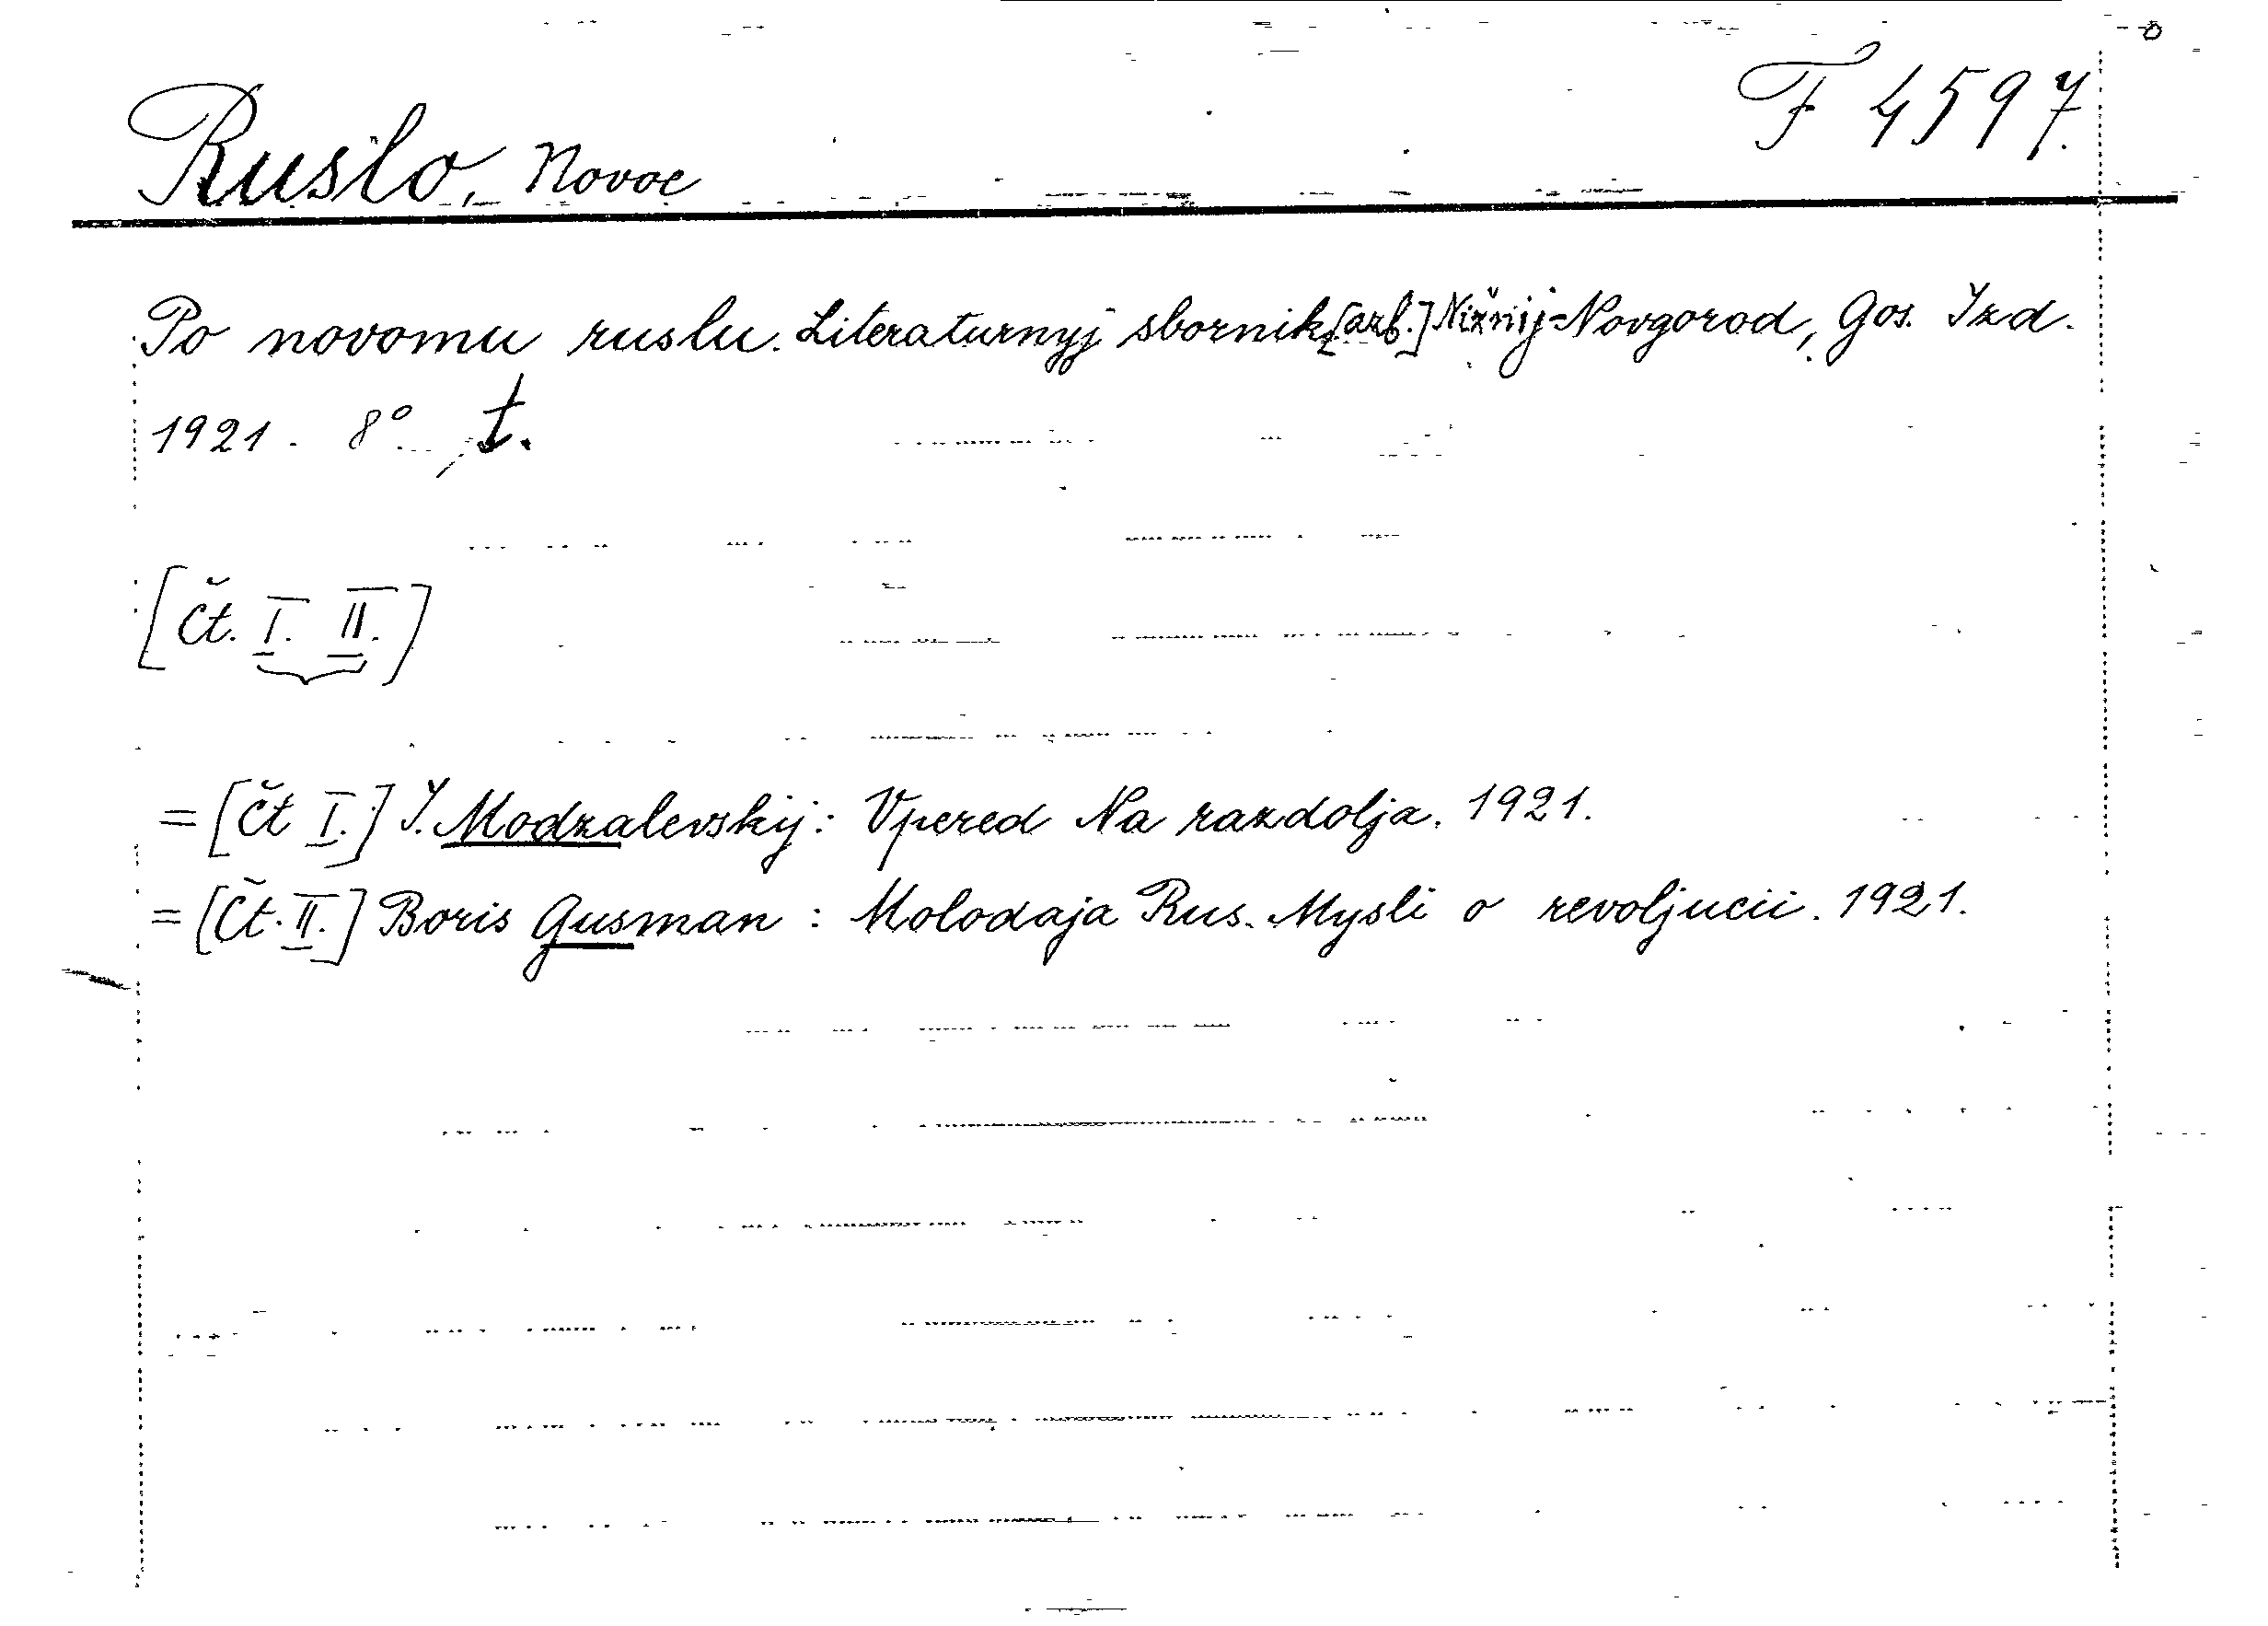 Ruslo, Novoe F 4597.
Po novomu ruslu. Literaturnyj sbornik. [azb.] Nižnij-Novgorod, Gos. Izd.
1921. 8° t.
[Čt. I. II.]
= [Čt I.] I. Modzalevskij: Vpered Na razdolja. 1921.
= [Čt. II.] Boris Gusman: Molodaja Rus. Mysli o revoljucii. 1921.